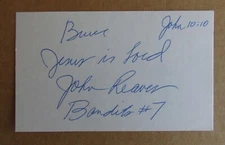 Bruce John 10:10
Jesus is Lord
John Reaves
Bandits #7